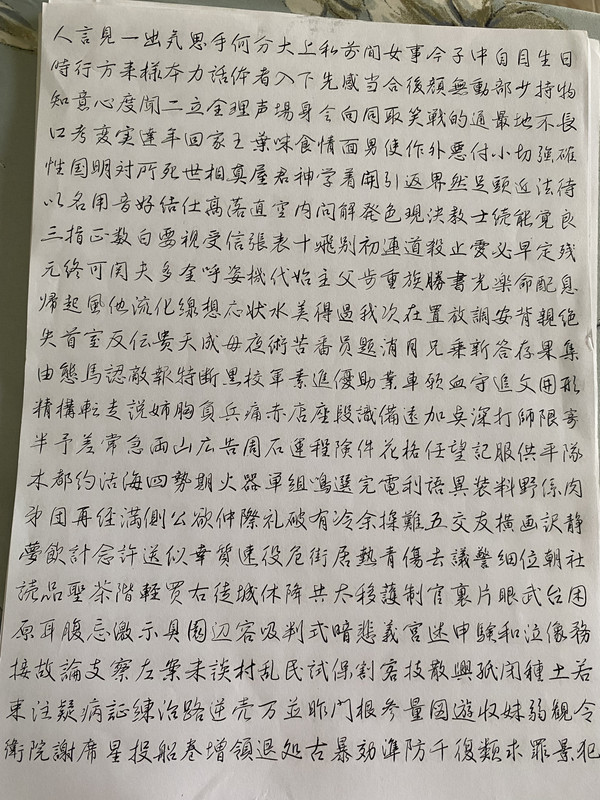 人言見一出気思手何分大上私前間女事今子中自目生日
時行方来様本力話体者入下先感当合後顔無動部少持物
知意心度聞二立全理声場身言向同取笑戦的通最地不長
口考変実達年回家王葉味食情面男使作外悪付小切強確
性国明対所死世相真屋君神学着開引返界然足頭近法待
以名用音好結仕高落直室内問解発色現決教士続能覚良
三指正数白要視受信張表十飛別初連道殺止愛必早定残
元終可関夫多金呼姿機代始主父歩重族勝書光楽命配息
帰起風他流化線想応状水美得過我次在置放調安背親絶
失首室反伝貴天成母夜術苦番員題消月兄乗新答存果集
由態馬認敵報特断黒校軍素進優助業車領血守追文囲形
精構転走説姉胸負兵痛赤店座段識備速加呉深打師限寄
半予差常急両山広告周石運程険件花格任望記服供平隊
木都約活海四勢期火器軍組鳴選完電利語異装料野係肉
弟団再経満側公欲仲際礼破有冷余操難五交友横画訳静
夢飲計念許送似幸質速役危街居熱青傷去議警細位朝社
読品聖茶階軽買右徒城休降共太移護制官裏片眼武台困
原耳腹忘激示具園辺容吸判式暗悲義宮迷申験和泣像務
接故論支察左案未談村乱民試保割客技散興紙閉種土若
東注疑病証練治路逆売万並昨門根参量図遊収妹弱観令
衛院謝席星投船巻増領退処古暴効準防千復類求罪景犯